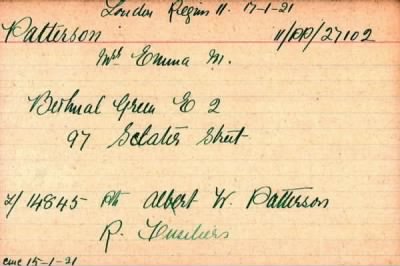 London Regions 11. 17-1-21
Patterson 11/PP/27102
Mrs Emma M.
Bethnal Green E 2
97 Sclater Street
L/14845 Pte Albert W. Patterson
R. Fusiliers
cmc 15-1-21